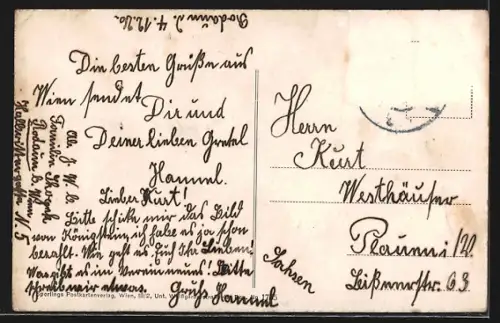 Rodaun d. 4.12.26.
Die besten Grüße aus
Wien sendet
Dir und
Deiner lieben Gretel
Hannel.
Lieber Kurt!
Bitte schike mir das Bild
von Königstein, ich habe es ja schon
bezahlt. Wie geht es Euch Ihr Lieben?
Was gibt es im Verein neues? Bitte
schreib mir etwas.
Gruß Hannel
Abs. z. W. b.
Familie
Rodaun b. Wien
N. 5
Herrn
Kurt
Westhäuser
Plauen i/V.
Sachsen
Leißnerstr. 63
Sperlings Postkartenverlag, Wien, III/2, Unt.